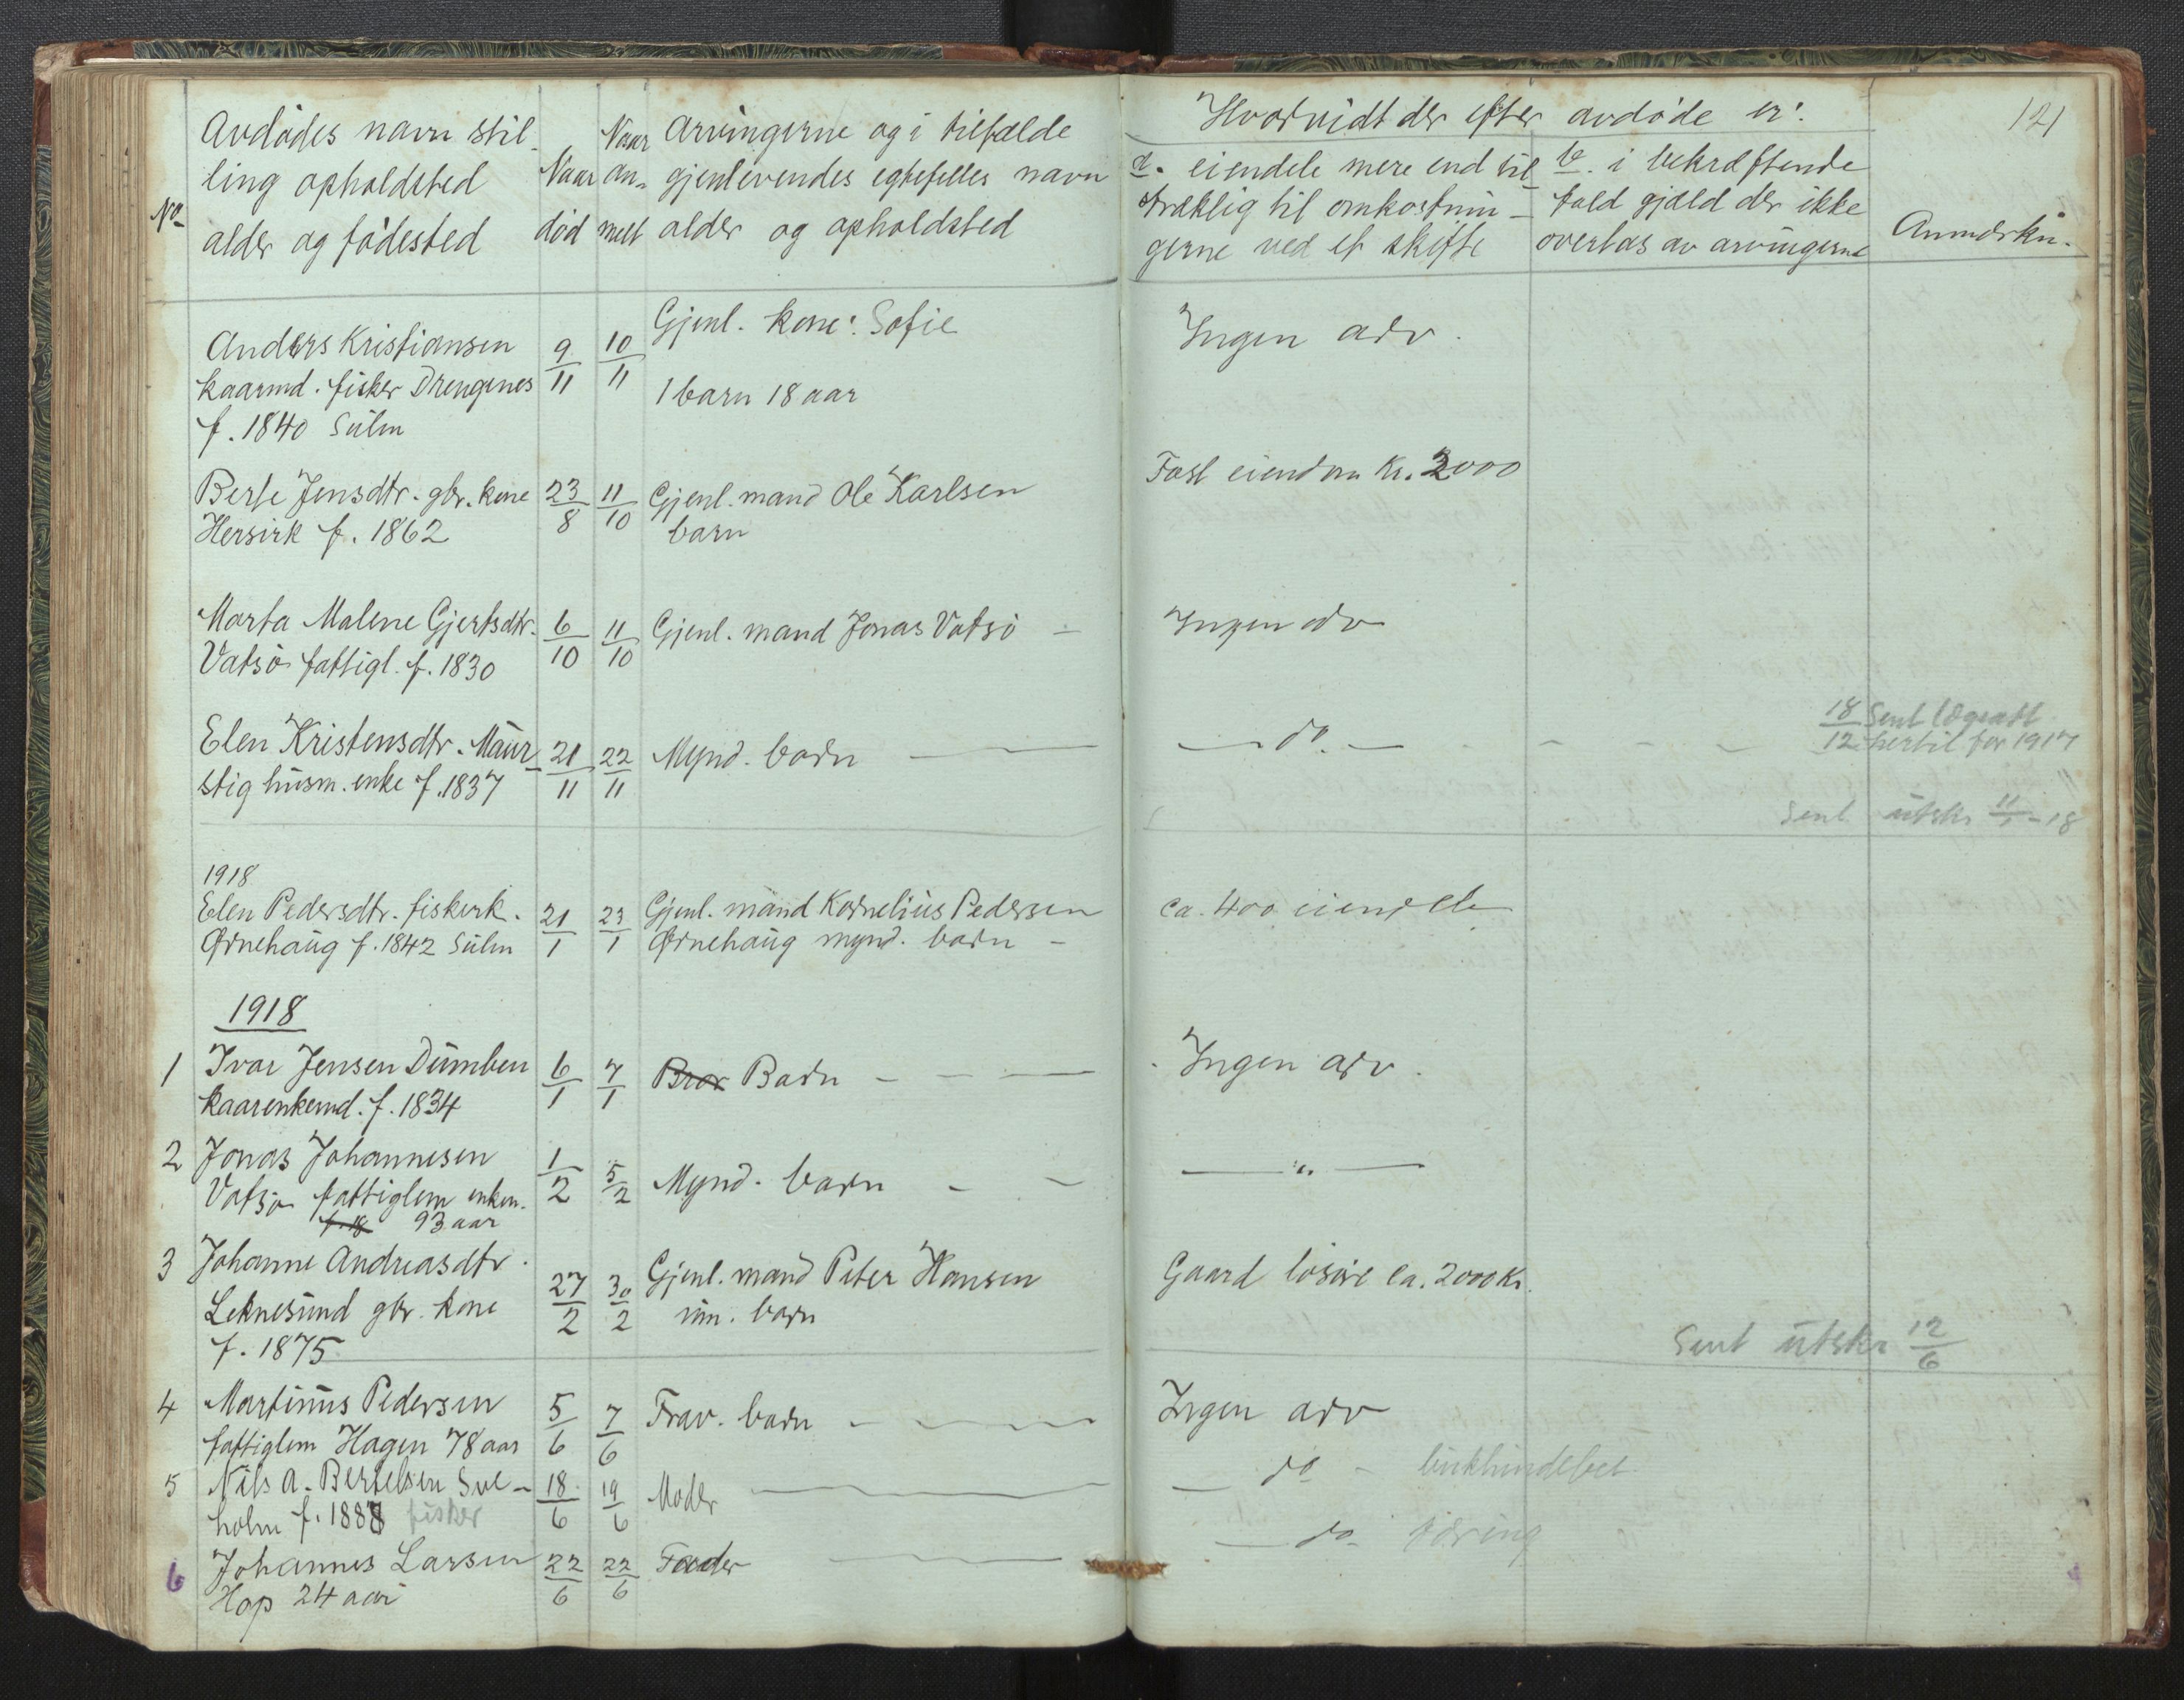 121
No
Avdødes navn stil-
ling opholdsted
alder og fødested
Naar
død
Naar
an-
melt
Arvingerne og i tilfælde
gjenlevendes egtefelles navn
alder og opholdsted
Hvorvidt der efter avdøde er:
a. eiendele mere end til-
strækkelig til omkostnin-
gerne ved et skifte
b. i bekræftende
fald gjæld der ikke
overtas av arvingerne
Anmerkn.
Anders Kristiansen
kaarmd. fisker Drengenes
f. 1840 Sulen
9/11
10/11
Gjenl. kone: Sofie
1 barn 18 aar
Ingen arv.
Berte Jensdtr. gbr. kone
Hersirk f. 1862
23/8
11/10
Gjenl. mand Ole Karlsen
barn
Fast eiendom Kr. 2000
Marta Malene Gjertsdtr.
Vatsø fattigl. f. 1830
6/10
11/10
Gjenl. mand Jonas Vatsø —
Ingen arv
Elen Kristensdtr. Maur-
stig husm. enke f. 1837
21/11
22/11
Mynd. barn —
— do. —
18/12 Sent
hertil for 1917
Sent utskr 11/1 - 18
1918
Elen Pedersdtr. fiskerk.
Ørnehaug f. 1842 Sulen
21/1
23/1
Gjenl. mand Kornelius Pedersen
Ørnehaug mynd. barn —
ca. 400 eiendele
1918
1 Ivar Jensen Dumben
kaarenkemd. f. 1834
6/1
7/1
Bror Barn — — —
Ingen arv.
2 Jonas Johannesen
Vatsø fattiglem enkem.
f. 18 93 aar
1/2
5/2
Mynd. barn — —
— " —
3 Johanne Andreasdtr.
Leknesund gbr. kone
f. 1875
27/2
30/2
Gjenl. mand Peter Hansen
um. barn
Gaard løsøre ca. 2000 Kr.
Sent utskr 12/6
4 Martinus Pedersen
fattiglem Hagen 78 aar
5/6
7/6
Frav. barn — — —
Ingen arv
5 Nils A. Bertelsen Sve-
holm f. 1888 fisker
18/6
19/6
Moder —
— do —
6 Johannes Larsen
Hop 24 aar
22/6
22/6
Fader —
— do tæring